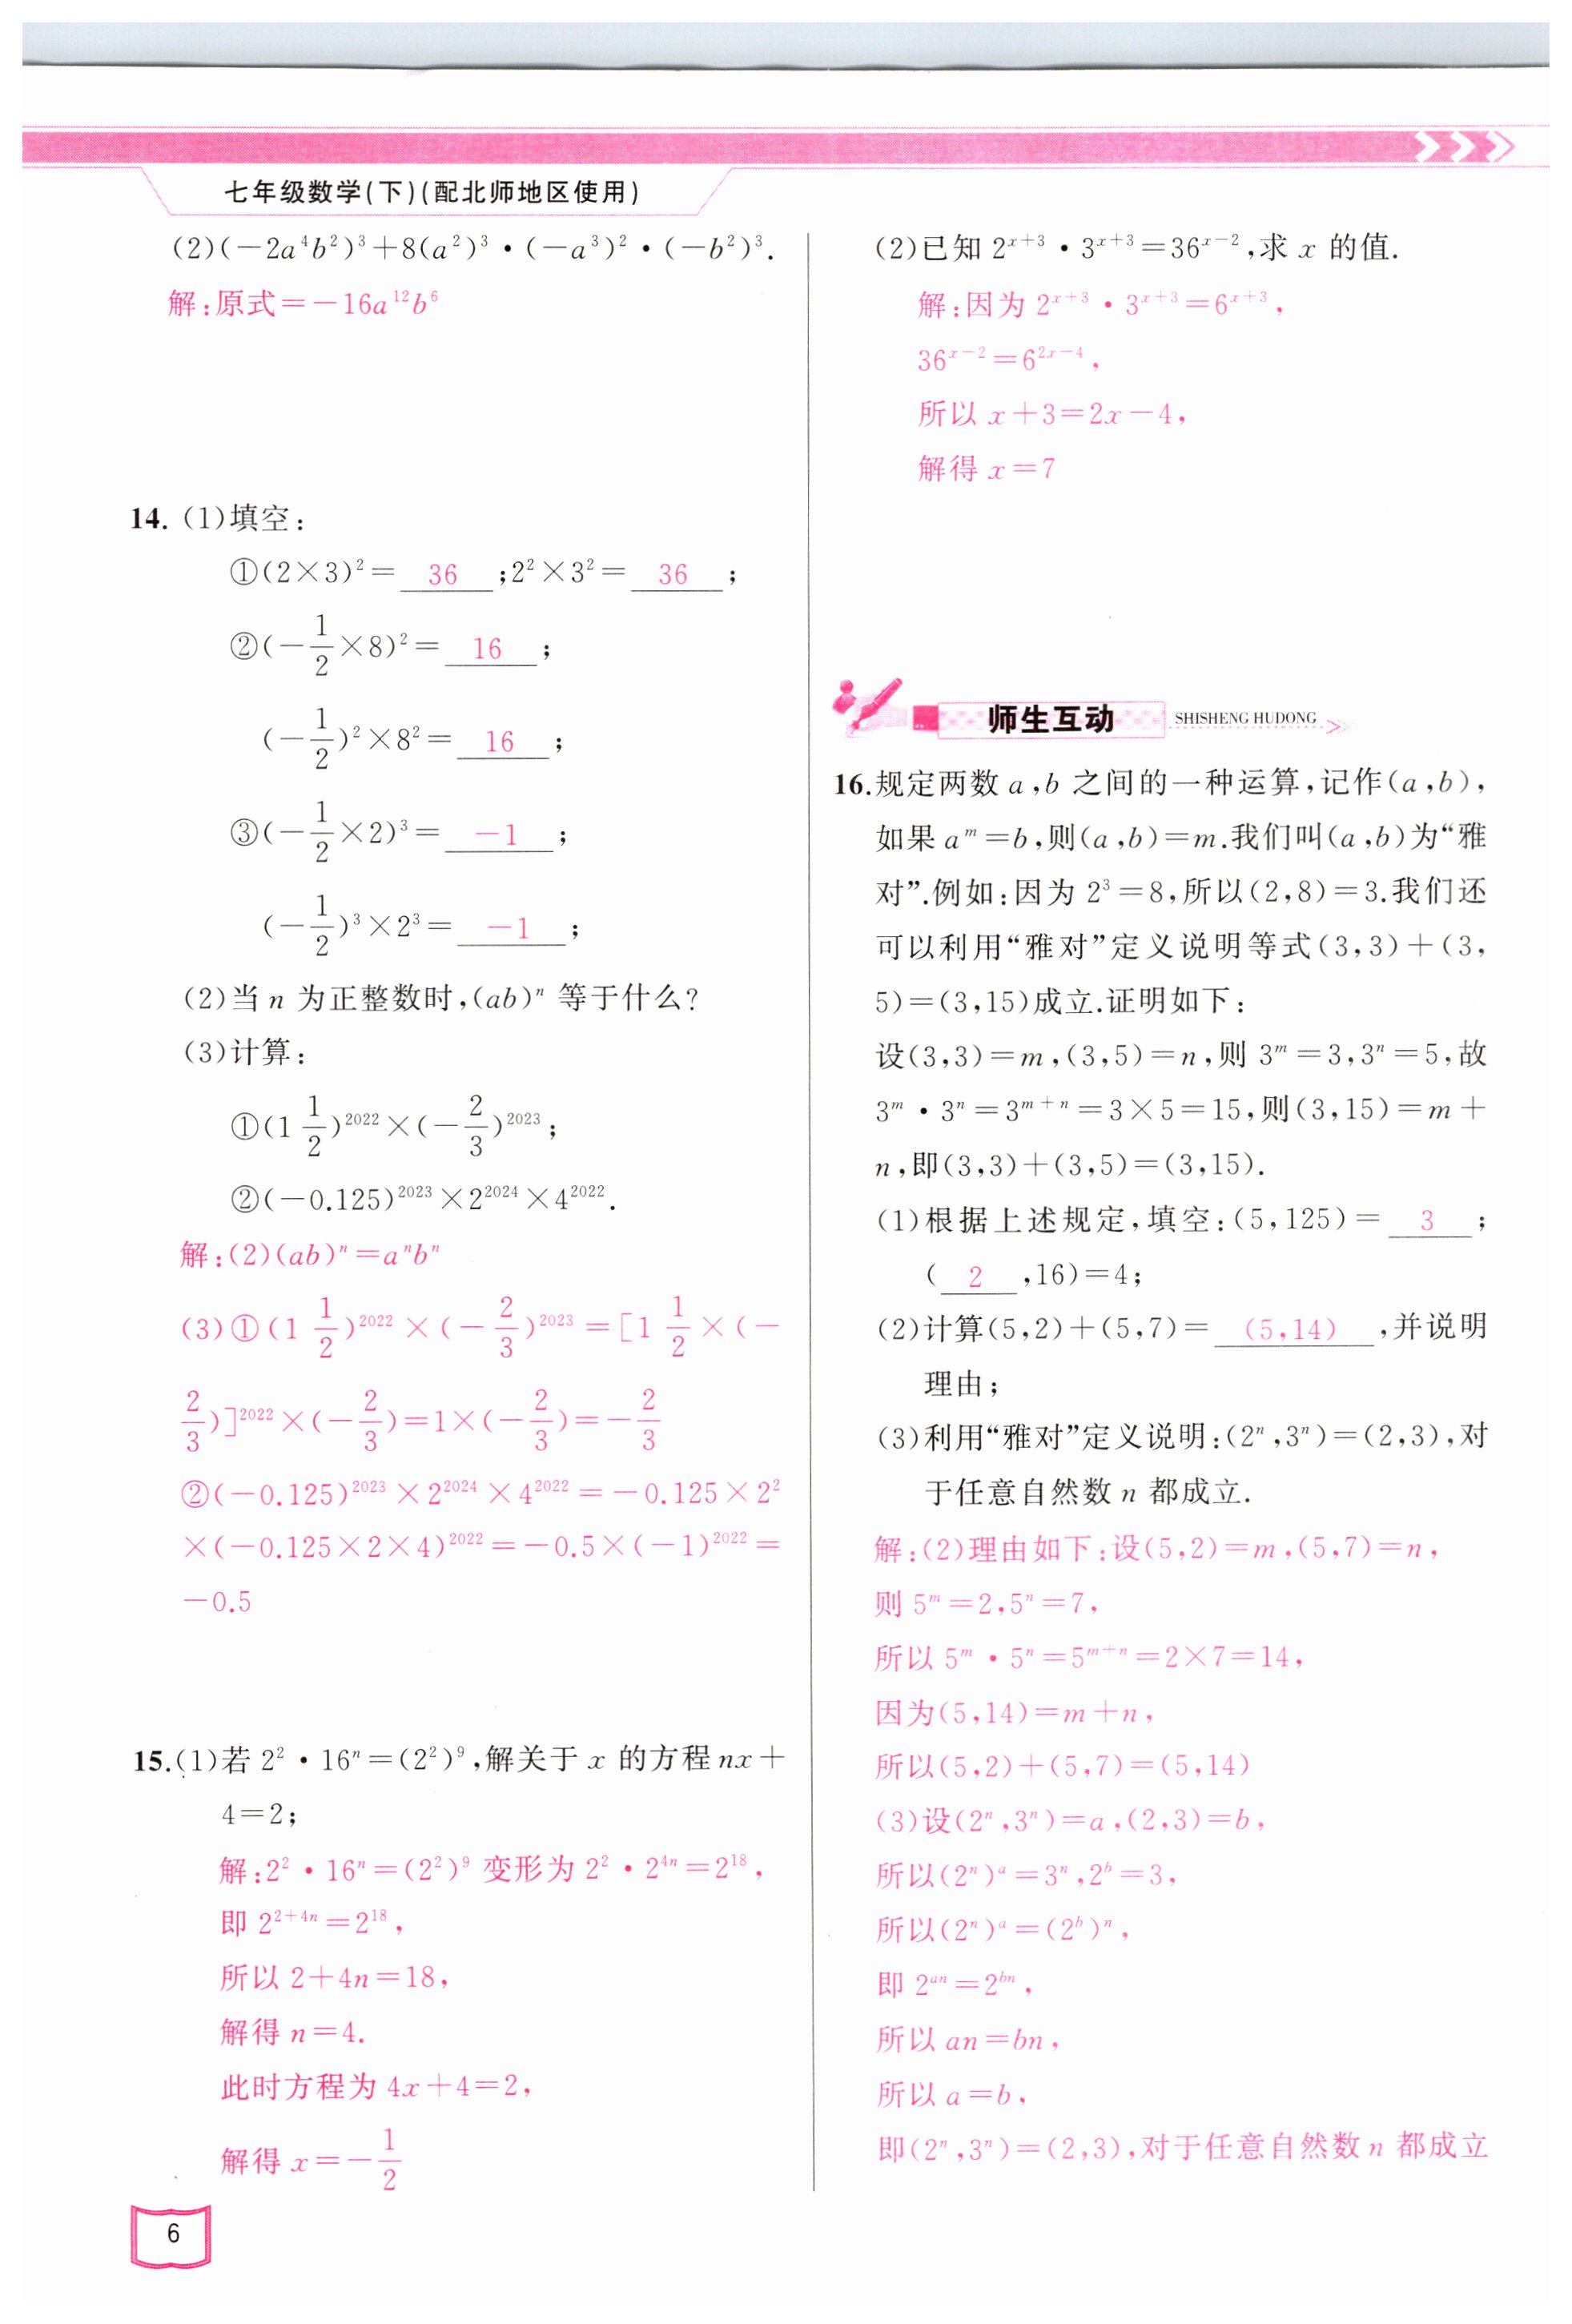 七年级数学(下)(配北师地区使用)
(2)(－2a⁴b²)³＋8(a²)³·(－a³)²·(－b²)³.
解:原式＝－16a¹²b⁶
14. (1)填空:
①(2×3)²＝ 36 ;2²×3²＝ 36 ;
②(－1/2×8)²＝ 16 ;
(－1/2)²×8²＝ 16 ;
③(－1/2×2)³＝ －1 ;
(－1/2)³×2³＝ －1 ;
(2)当 n 为正整数时,(ab)ⁿ 等于什么?
(3)计算:
①(1 1/2)²⁰²²×(－2/3)²⁰²³;
②(－0.125)²⁰²³×2²⁰²⁴×4²⁰²².
解:(2)(ab)ⁿ＝aⁿbⁿ
(3)①(1 1/2)²⁰²²×(－2/3)²⁰²³＝[1 1/2×(－
2/3)]²⁰²²×(－2/3)＝1×(－2/3)＝－2/3
②(－0.125)²⁰²³×2²⁰²⁴×4²⁰²²＝－0.125×2²
×(－0.125×2×4)²⁰²²＝－0.5×(－1)²⁰²²＝
－0.5
15.(1)若 2²·16ⁿ＝(2²)⁹,解关于 x 的方程 nx＋
4＝2;
解:2²·16ⁿ＝(2²)⁹ 变形为 2²·2⁴ⁿ＝2¹⁸,
即 2²⁺⁴ⁿ＝2¹⁸,
所以 2＋4n＝18,
解得 n＝4.
此时方程为 4x＋4＝2,
解得 x＝－1/2
6
(2)已知 2ˣ⁺³·3ˣ⁺³＝36ˣ⁻²,求 x 的值.
解:因为 2ˣ⁺³·3ˣ⁺³＝6ˣ⁺³,
36ˣ⁻²＝6²ˣ⁻⁴,
所以 x＋3＝2x－4,
解得 x＝7
师生互动 SHISHENG HUDONG
16.规定两数 a,b 之间的一种运算,记作(a,b),
如果 aᵐ＝b,则(a,b)＝m.我们叫(a,b)为“雅
对”.例如:因为 2³＝8,所以(2,8)＝3.我们还
可以利用“雅对”定义说明等式(3,3)＋(3,
5)＝(3,15)成立.证明如下:
设(3,3)＝m,(3,5)＝n,则 3ᵐ＝3,3ⁿ＝5,故
3ᵐ·3ⁿ＝3ᵐ⁺ⁿ＝3×5＝15,则(3,15)＝m＋
n,即(3,3)＋(3,5)＝(3,15).
(1)根据上述规定,填空:(5,125)＝ 3 ;
( 2 ,16)＝4;
(2)计算(5,2)＋(5,7)＝ (5,14) ,并说明
理由;
(3)利用“雅对”定义说明:(2ⁿ,3ⁿ)＝(2,3),对
于任意自然数 n 都成立.
解:(2)理由如下:设(5,2)＝m,(5,7)＝n,
则 5ᵐ＝2,5ⁿ＝7,
所以 5ᵐ·5ⁿ＝5ᵐ⁺ⁿ＝2×7＝14,
因为(5,14)＝m＋n,
所以(5,2)＋(5,7)＝(5,14)
(3)设(2ⁿ,3ⁿ)＝a,(2,3)＝b,
所以(2ⁿ)ᵃ＝3ⁿ,2ᵇ＝3,
所以(2ⁿ)ᵃ＝(2ᵇ)ⁿ,
即 2ᵃⁿ＝2ᵇⁿ,
所以 an＝bn,
所以 a＝b,
即(2ⁿ,3ⁿ)＝(2,3),对于任意自然数 n 都成立